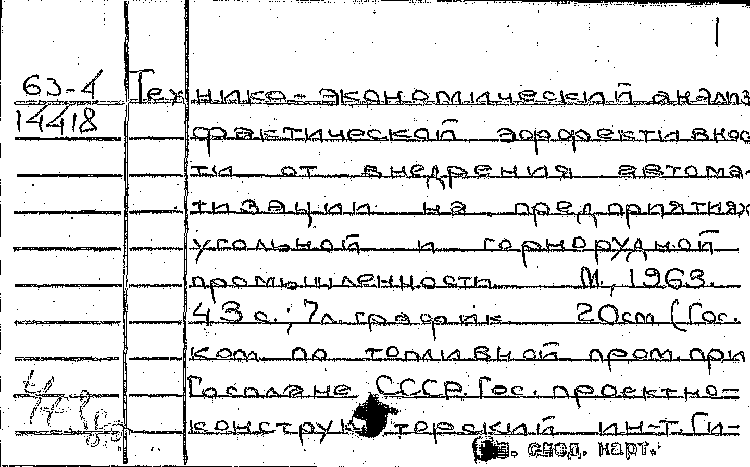 63-4
14418
Технико-экономический анализ
фактической эффективнос
ти от внедрения автома-
тизации на предприятиях
угольной и горнорудной
промышленности М., 1963.
43 с.; 7л. график 20см (Гос.
ком. по топливной пром. при
Госплане СССР. Гос. проектно-
конструкторский ин-т. Ги-
след. карт.